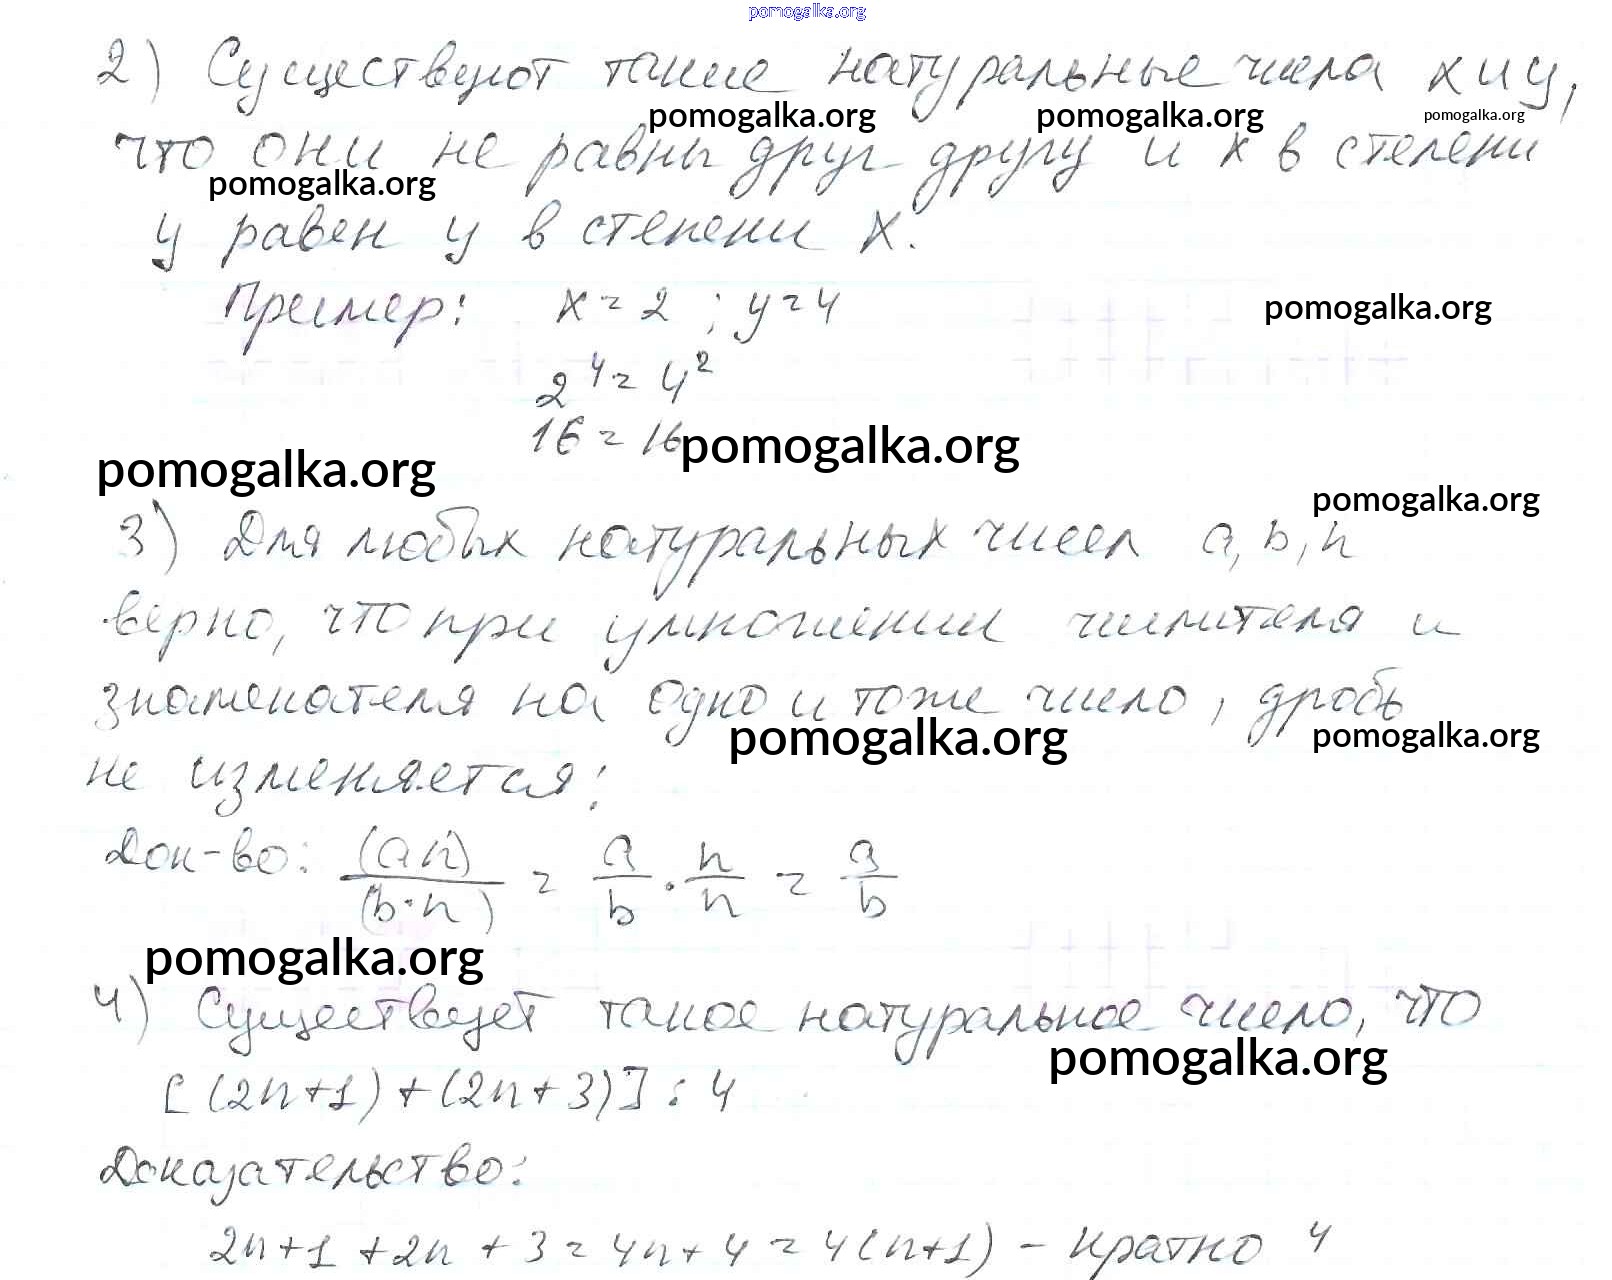 pomogalka.org
2) Существуют такие натуральные числа x и y,
pomogalka.org pomogalka.org pomogalka.org
что они не равны друг другу и x в степени
pomogalka.org
y равен y в степени x.
Пример: x = 2 ; y = 4
pomogalka.org
2⁴ = 4²
16 = 16
pomogalka.org
pomogalka.org
pomogalka.org
3) Для любых натуральных чисел a, b, n
верно, что при умножении числителя и
знаменателя на одно и тоже число, дробь
pomogalka.org pomogalka.org
не изменяется;
Док-во: (an)/(b·n) = a/b · n/n = a/b
pomogalka.org
4) Существует такое натуральное число, что
pomogalka.org
[(2n+1)+(2n+3)] : 4
Доказательство:
2n+1+2n+3=4n+4=4(n+1) – кратно 4